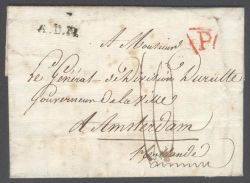 A.D.N.
P
A Monsieur
Le Général de Division Durutte
Gouverneur de la Ville
d'Amsterdam
Hollande